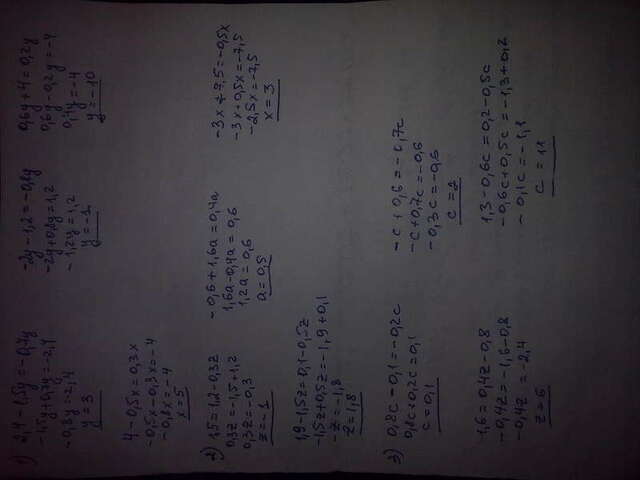 1) 2,4-1,5y=-0,7y
-1,5y+0,7y=-2,4
-0,8y=-2,4
y=3
-2y-1,2=-0,8y
-2y+0,8y=1,2
-1,2y=1,2
y=-1
0,6y+4=0,2y
0,6y-0,2y=-4
0,4y=-4
y=-10
4-0,5x=0,3x
-0,5x-0,3x=-4
-0,8x=-4
x=5
2) 1,5=1,2-0,3z
0,3z=-1,5+1,2
0,3z=-0,3
z=-1
-0,6+1,6a=0,4a
1,6a-0,4a=0,6
1,2a=0,6
a=0,5
-3x+7,5=-0,5x
-3x+0,5x=-7,5
-2,5x=-7,5
x=3
1,9-1,5z=0,1-0,5z
-1,5z+0,5z=-1,9+0,1
-z=-1,8
z=1,8
3) 0,8c-0,1=-0,2c
0,8c+0,2c=0,1
c=0,1
-c+0,6=-0,7c
-c+0,7c=-0,6
-0,3c=-0,6
c=2
1,6=0,4z-0,8
-0,4z=-1,6-0,8
-0,4z=-2,4
z=6
1,3-0,6c=0,2-0,5c
-0,6c+0,5c=-1,3+0,2
-0,1c=-1,1
c=11